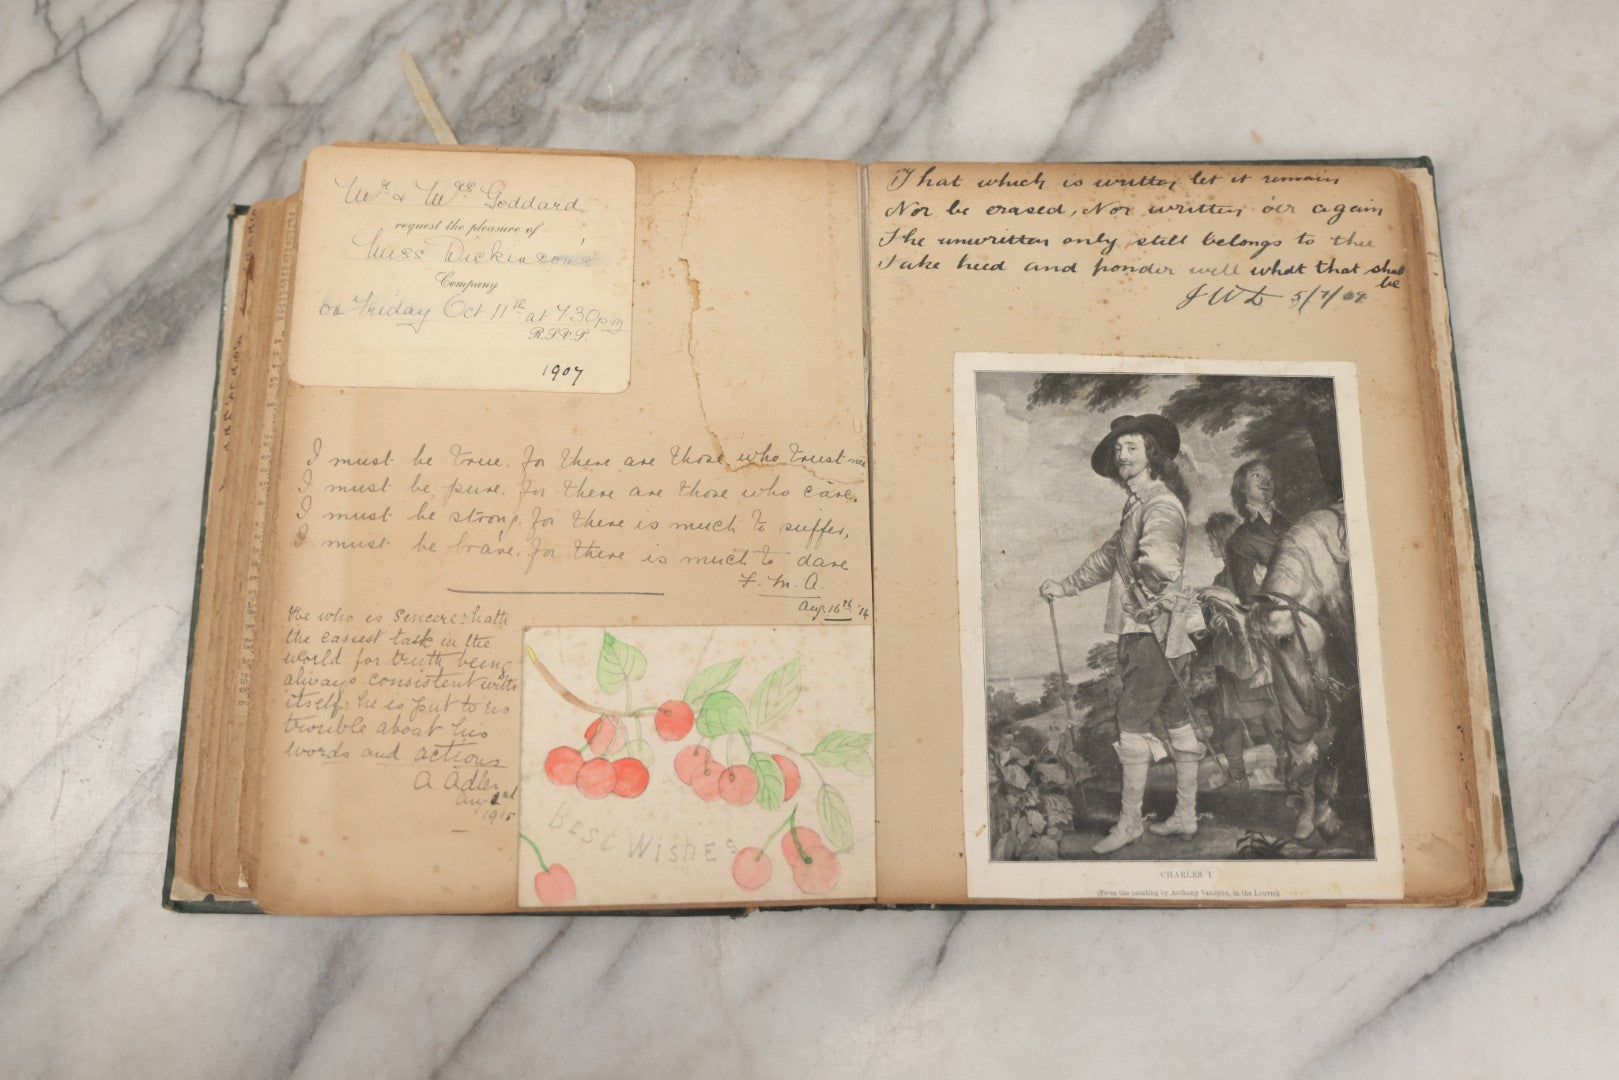 Mr. & Mrs. Goddard
request the pleasure of
Miss Dickinson's
Company
on Friday Oct 11th at 7 30 p.m
R.S.V.P.
1907
I must be true, for there are those who trust me
I must be pure, for there are those who care,
I must be strong, for there is much to suffer,
I must be brave, for there is much to dare
F. M. A.
Aug. 16th '14
He who is sencere hath
the easiest task in the
world for truth being
always consistent with
itself, he is put to no
trouble about his
words and actions
A. Adler
Aug 2nd
1915
BEST WISHES
That which is written let it remain
Nor be erased, Nor written o'er again
The unwritten only still belongs to thee
Take heed and ponder well what that shall
be
J W D 5/7/09
CHARLES I
(From the painting by Anthony Vandyke, in the Louvre)